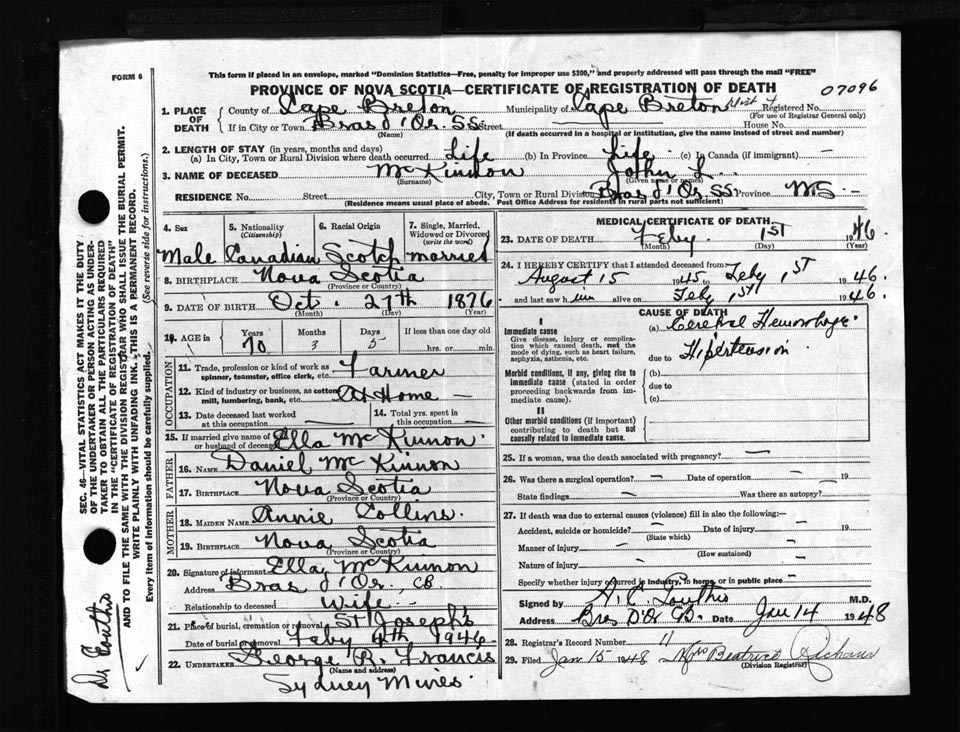 FORM 6
This form if placed in an envelope, marked "Dominion Statistics—Free, penalty for improper use $300," and properly addressed will pass through the mail "FREE"
PROVINCE OF NOVA SCOTIA—CERTIFICATE OF REGISTRATION OF DEATH 07096
1. PLACE OF DEATH County of Cape Breton Municipality of Cape Breton Registered No.
(For use of Registrar General only)
If in City or Town Bras d'Or. SS. Street House No.
(Name) (If death occurred in a hospital or institution, give the name instead of street and number)
2. LENGTH OF STAY (in years, months and days)
(a) In City, Town or Rural Division where death occurred Life (b) In Province Life (c) In Canada (if immigrant) —
3. NAME OF DECEASED McKinnon John L.
(Surname) (Given name or names)
RESIDENCE No. Street City, Town or Rural Division Bras d'Or. SS Province N.S. —
(Residence means usual place of abode. Post Office Address for residents in rural parts not sufficient)
4. Sex 5. Nationality (Citizenship) 6. Racial Origin 7. Single, Married, Widowed or Divorced (write the word)
Male Canadian Scotch married
8. BIRTHPLACE Nova Scotia
(Province or Country)
9. DATE OF BIRTH Oct. 27th 1876
(Month) (Day) (Year)
10. AGE in Years Months Days If less than one day old
70 3 5 hrs. or min.
OCCUPATION
11. Trade, profession or kind of work as spinner, teamster, office clerk, etc. Farmer
12. Kind of industry or business, as cotton mill, lumbering, bank, etc. At Home —
13. Date deceased last worked at this occupation 14. Total yrs. spent in this occupation
15. If married give name of wife or husband of deceased Ella McKinnon.
FATHER
16. Name Daniel McKinnon
17. Birthplace Nova Scotia
(Province or Country)
MOTHER
18. Maiden Name Annie Collins.
19. Birthplace Nova Scotia
(Province or Country)
20. Signature of informant Ella McKinnon
Address Bras d'Or. CB
Relationship to deceased Wife —
21. Place of burial, cremation or removal St Joseph's
Date of burial or removal Feby 4th 1946
22. UNDERTAKER George R. Francis
(Name and address)
Sydney Mines.
MEDICAL CERTIFICATE OF DEATH
23. DATE OF DEATH Feby. 1ST 1946.
(Month) (Day) (Year)
24. I HEREBY CERTIFY that I attended deceased from
August 15 1945 to Feby 1ST 1946.
and last saw him alive on Feby 1ST 1946.
CAUSE OF DEATH
I
Immediate cause (a) Cerebral Hemorrhage
Give disease, injury or complication which caused death, not the mode of dying, such as heart failure, asphyxia, asthenia, etc.
due to Hipertension
Morbid conditions, if any, giving rise to immediate cause (stated in order proceeding backwards from immediate cause).
(b)
due to
(c)
II
Other morbid conditions (if important) contributing to death but not causally related to immediate cause.
25. If a woman, was the death associated with pregnancy? —
26. Was there a surgical operation? — Date of operation — 19
State findings — Was there an autopsy?
27. If death was due to external causes (violence) fill in also the following:—
Accident, suicide or homicide? — Date of injury — 19
(State which)
Manner of injury — —
(How sustained)
Nature of injury — —
Specify whether injury occurred in industry, in home, or in public place —
Signed by M.D.
Address Bras D'Or CB. Date Jan 14 1948
28. Registrar's Record Number 11
29. Filed Jan 15 1948 Mrs Beatrice
(Division Registrar)
SEC. 46—VITAL STATISTICS ACT MAKES IT THE DUTY OF THE UNDERTAKER OR PERSON ACTING AS UNDERTAKER TO OBTAIN ALL THE PARTICULARS REQUIRED IN THE "CERTIFICATE OF REGISTRATION OF DEATH" AND TO FILE THE SAME WITH THE DIVISION REGISTRAR WHO SHALL ISSUE THE BURIAL PERMIT.
WRITE PLAINLY WITH UNFADING INK. THIS IS A PERMANENT RECORD.
Every item of information should be carefully supplied. (See reverse side for instructions.)
Dr